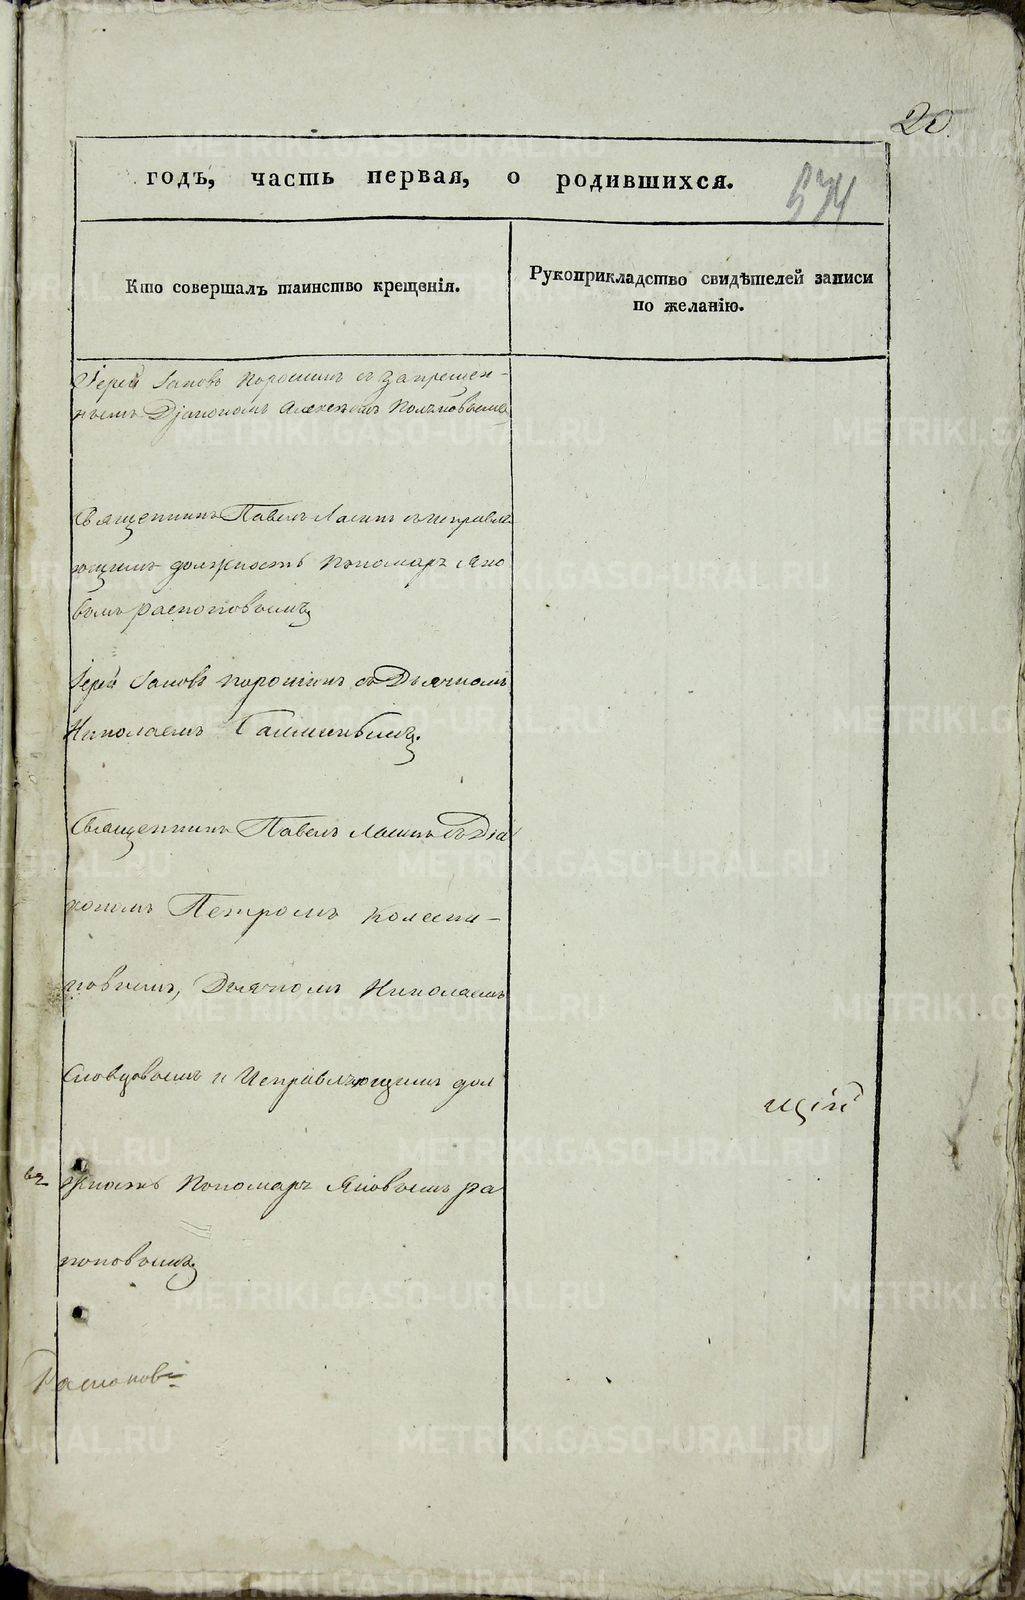 20.
годъ, часть первая, о родившихся.
574
Кто совершалъ таинство крещенія.
Рукоприкладство свидѣтелей записи
по желанію.
Іерей Іаковъ Порошинъ съ запрещен-
нымъ Діакономъ Алексѣемъ
Священникъ Павелъ съ исправля
ющимъ должность Пономаря Яко
вомъ распоповымъ
Іерей Іаковъ порошинъ съ Дьячкомъ
Николаемъ
Священникъ Павелъ съ Діа
кономъ Петромъ Колесни-
ковымъ, Дьячкомъ Николаемъ
Словцовымъ и Исправляющимъ дол
щій
жность Пономаря Яковымъ ра
поповымъ
Распоповъ
METRIKI.GASO-URAL.RU